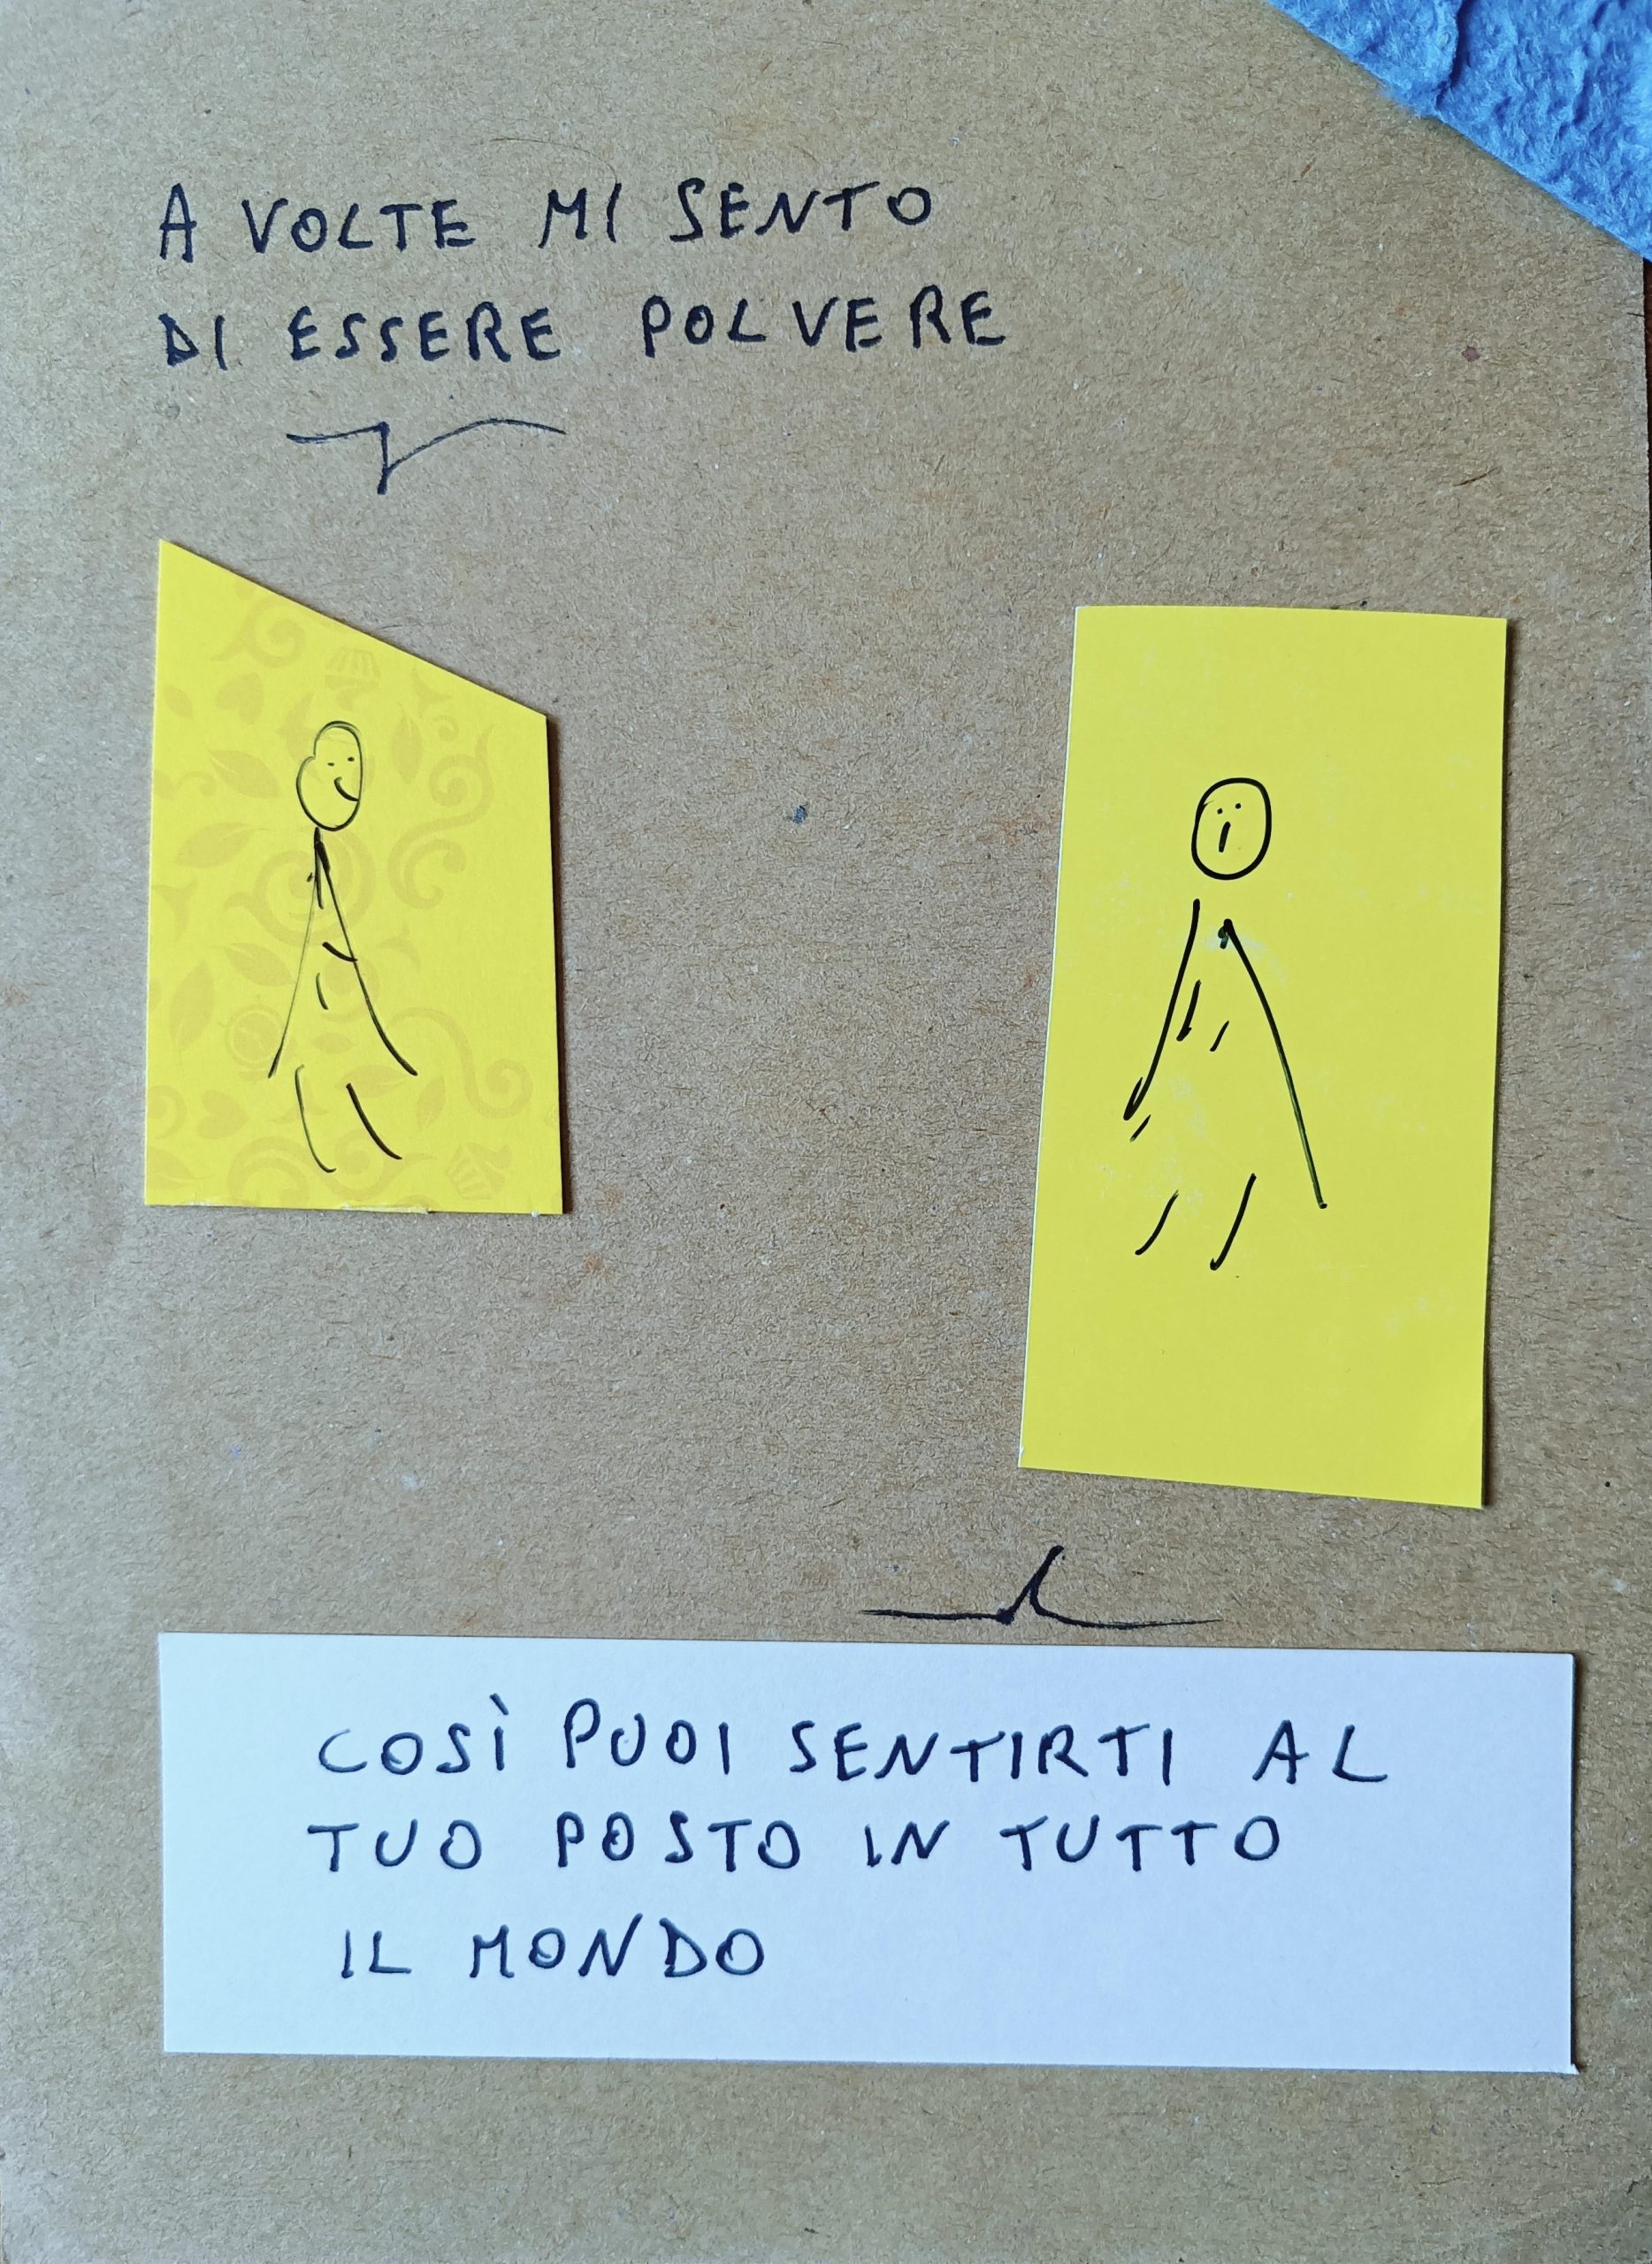 A VOLTE MI SENTO
DI ESSERE POLVERE
COSÌ PUOI SENTIRTI AL
TUO POSTO IN TUTTO
IL MONDO